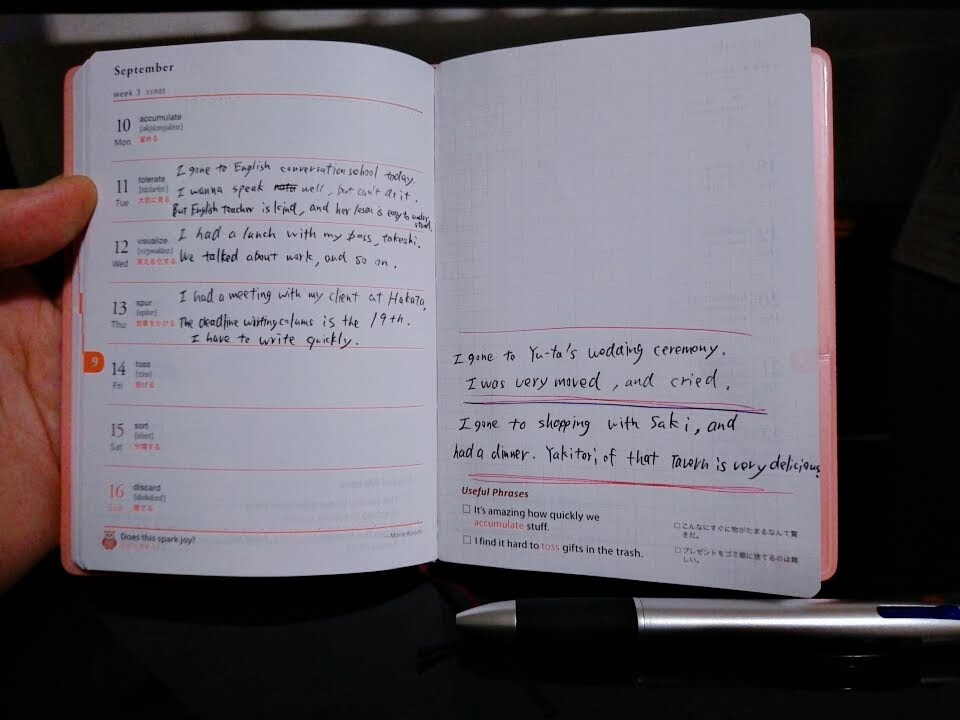 September
week 3 VERBS
10 accumulate
Mon 溜める
I gone to English conversation school today.
11 tolerate I wanna speak well, but can't do it.
Tue 大目に見る But English teacher is kind, and her leson is easy to under
stand.
I had a lunch with my boss, takeshi.
12 visualize We talked about work, and so on.
Wed 見える化する
I had a meeting with my client at Hakata.
13 spur The deadline writing colums is the 19th.
Thu 拍車をかける I have to write quickly.
9
14 toss
Fri 投げる
15 sort
Sat 分類する
16 discard
Sun 捨てる
Does this spark joy?
—Marie Kondo
I gone to Yu-ta's wedding ceremony.
I was very moved, and cried.
I gone to shopping with Saki, and
had a dinner. Yakitori of that Tavern is very delicious.
Useful Phrases
It's amazing how quickly we
accumulate stuff.
こんなにすぐに物がたまるなんて驚
きだ。
I find it hard to toss gifts in the trash.
プレゼントをゴミ箱に捨てるのは難
しい。